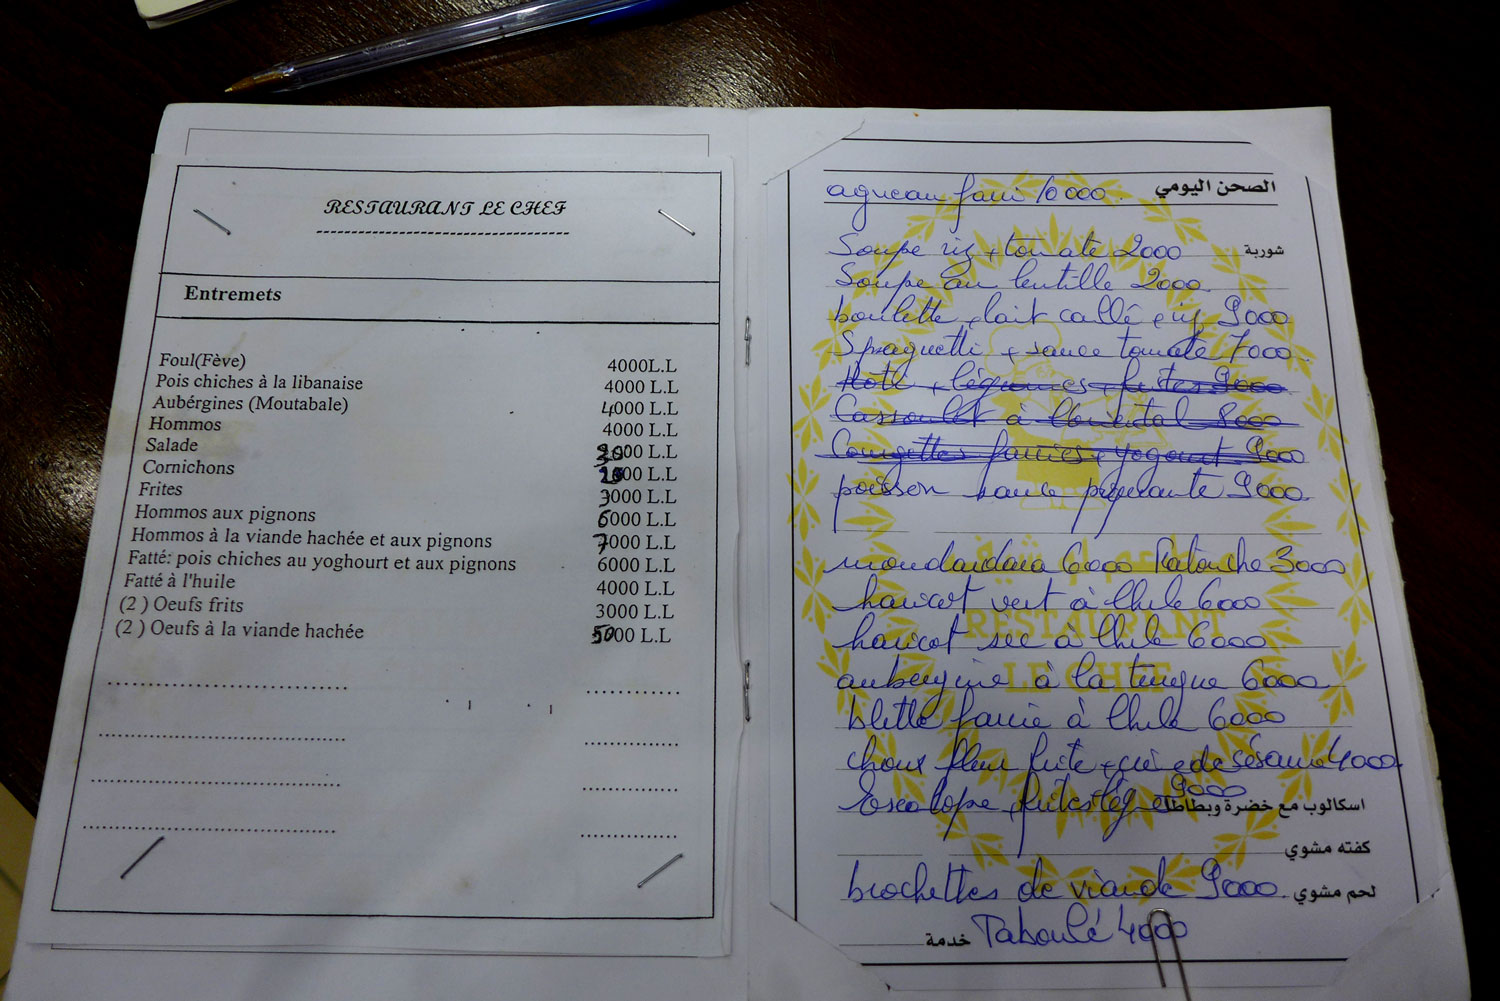 RESTAURANT LE CHEF
Entremets
Foul(Fève) 4000L.L
Pois chiches à la libanaise 4000 L.L
Aubérgines (Moutabale) 4000 L.L
Hommos 4000 L.L
Salade 3000 L.L
Cornichons 2000 L.L
Frites 3000 L.L
Hommos aux pignons 6000 L.L
Hommos à la viande hachée et aux pignons 7000 L.L
Fatté: pois chiches au yoghourt et aux pignons 6000 L.L
Fatté à l'huile 4000 L.L
(2 ) Oeufs frits 3000 L.L
(2 ) Oeufs à la viande hachée 5000 L.L
agneau farci 10000 الصحن اليومي
Soupe riz + tomate 2000 شوربة
Soupe au lentille 2000
boulette + lait caillé + riz 9000
Spaguetti + sauce tomate 7000
Roti + légumes + frites 9000
Cassoulet à l'oriental 8000
Courgettes farcies + yogourt 9000
poisson sauce piquante 9000
moudardara 6000 Fatouche 3000
haricot vert à l'huile 6000
haricot sec à l'huile 6000
aubergine à la turque 6000
blette farcie à l'huile 6000
choux fleur frite + de sésame 4000
Escalope frites lég 9000 اسكالوب مع خضرة وبطاطا
كفته مشوي
brochettes de viande 9000 لحم مشوي
Taboulé 4000 خدمة
RESTAURANT
LE CHEF